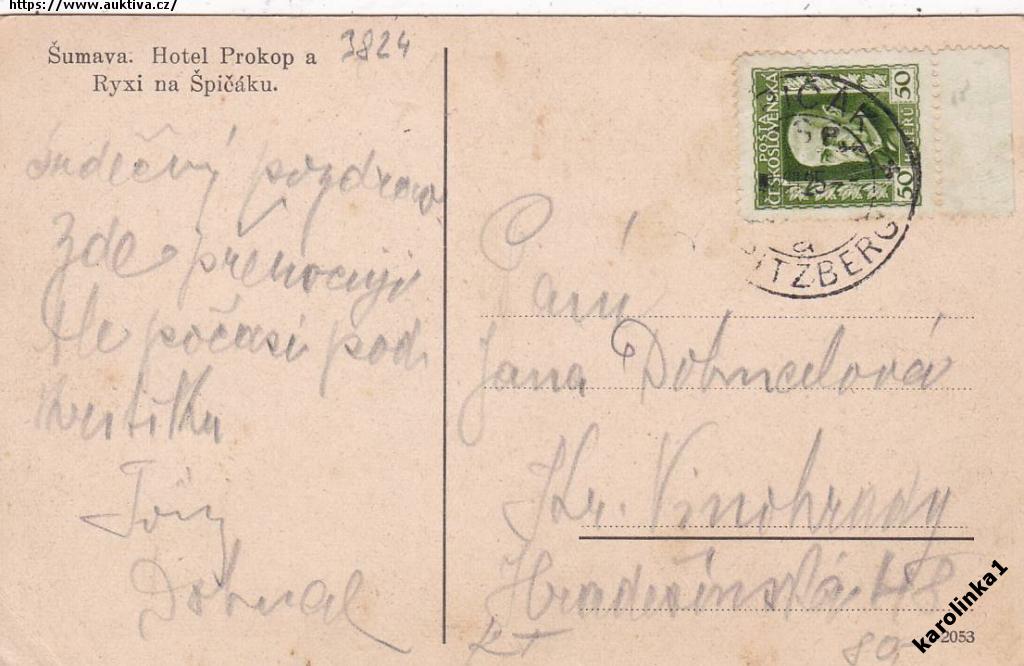 https://www.auktiva.cz/
Šumava. Hotel Prokop a
Ryxi na Špičáku.
3824
Srdečný pozdrav
Zde přenocuji
Ale počasí pod
kritiku
Dobnal
POŠTA
ČESKOSLOVENSKÁ
50
HALÉŘŮ
50
ŠPIČÁK
SPITZBERG
Paní
Jana Dobnalová
Kr. Vinohrady
Hradešínská
80
2053
karolinka1